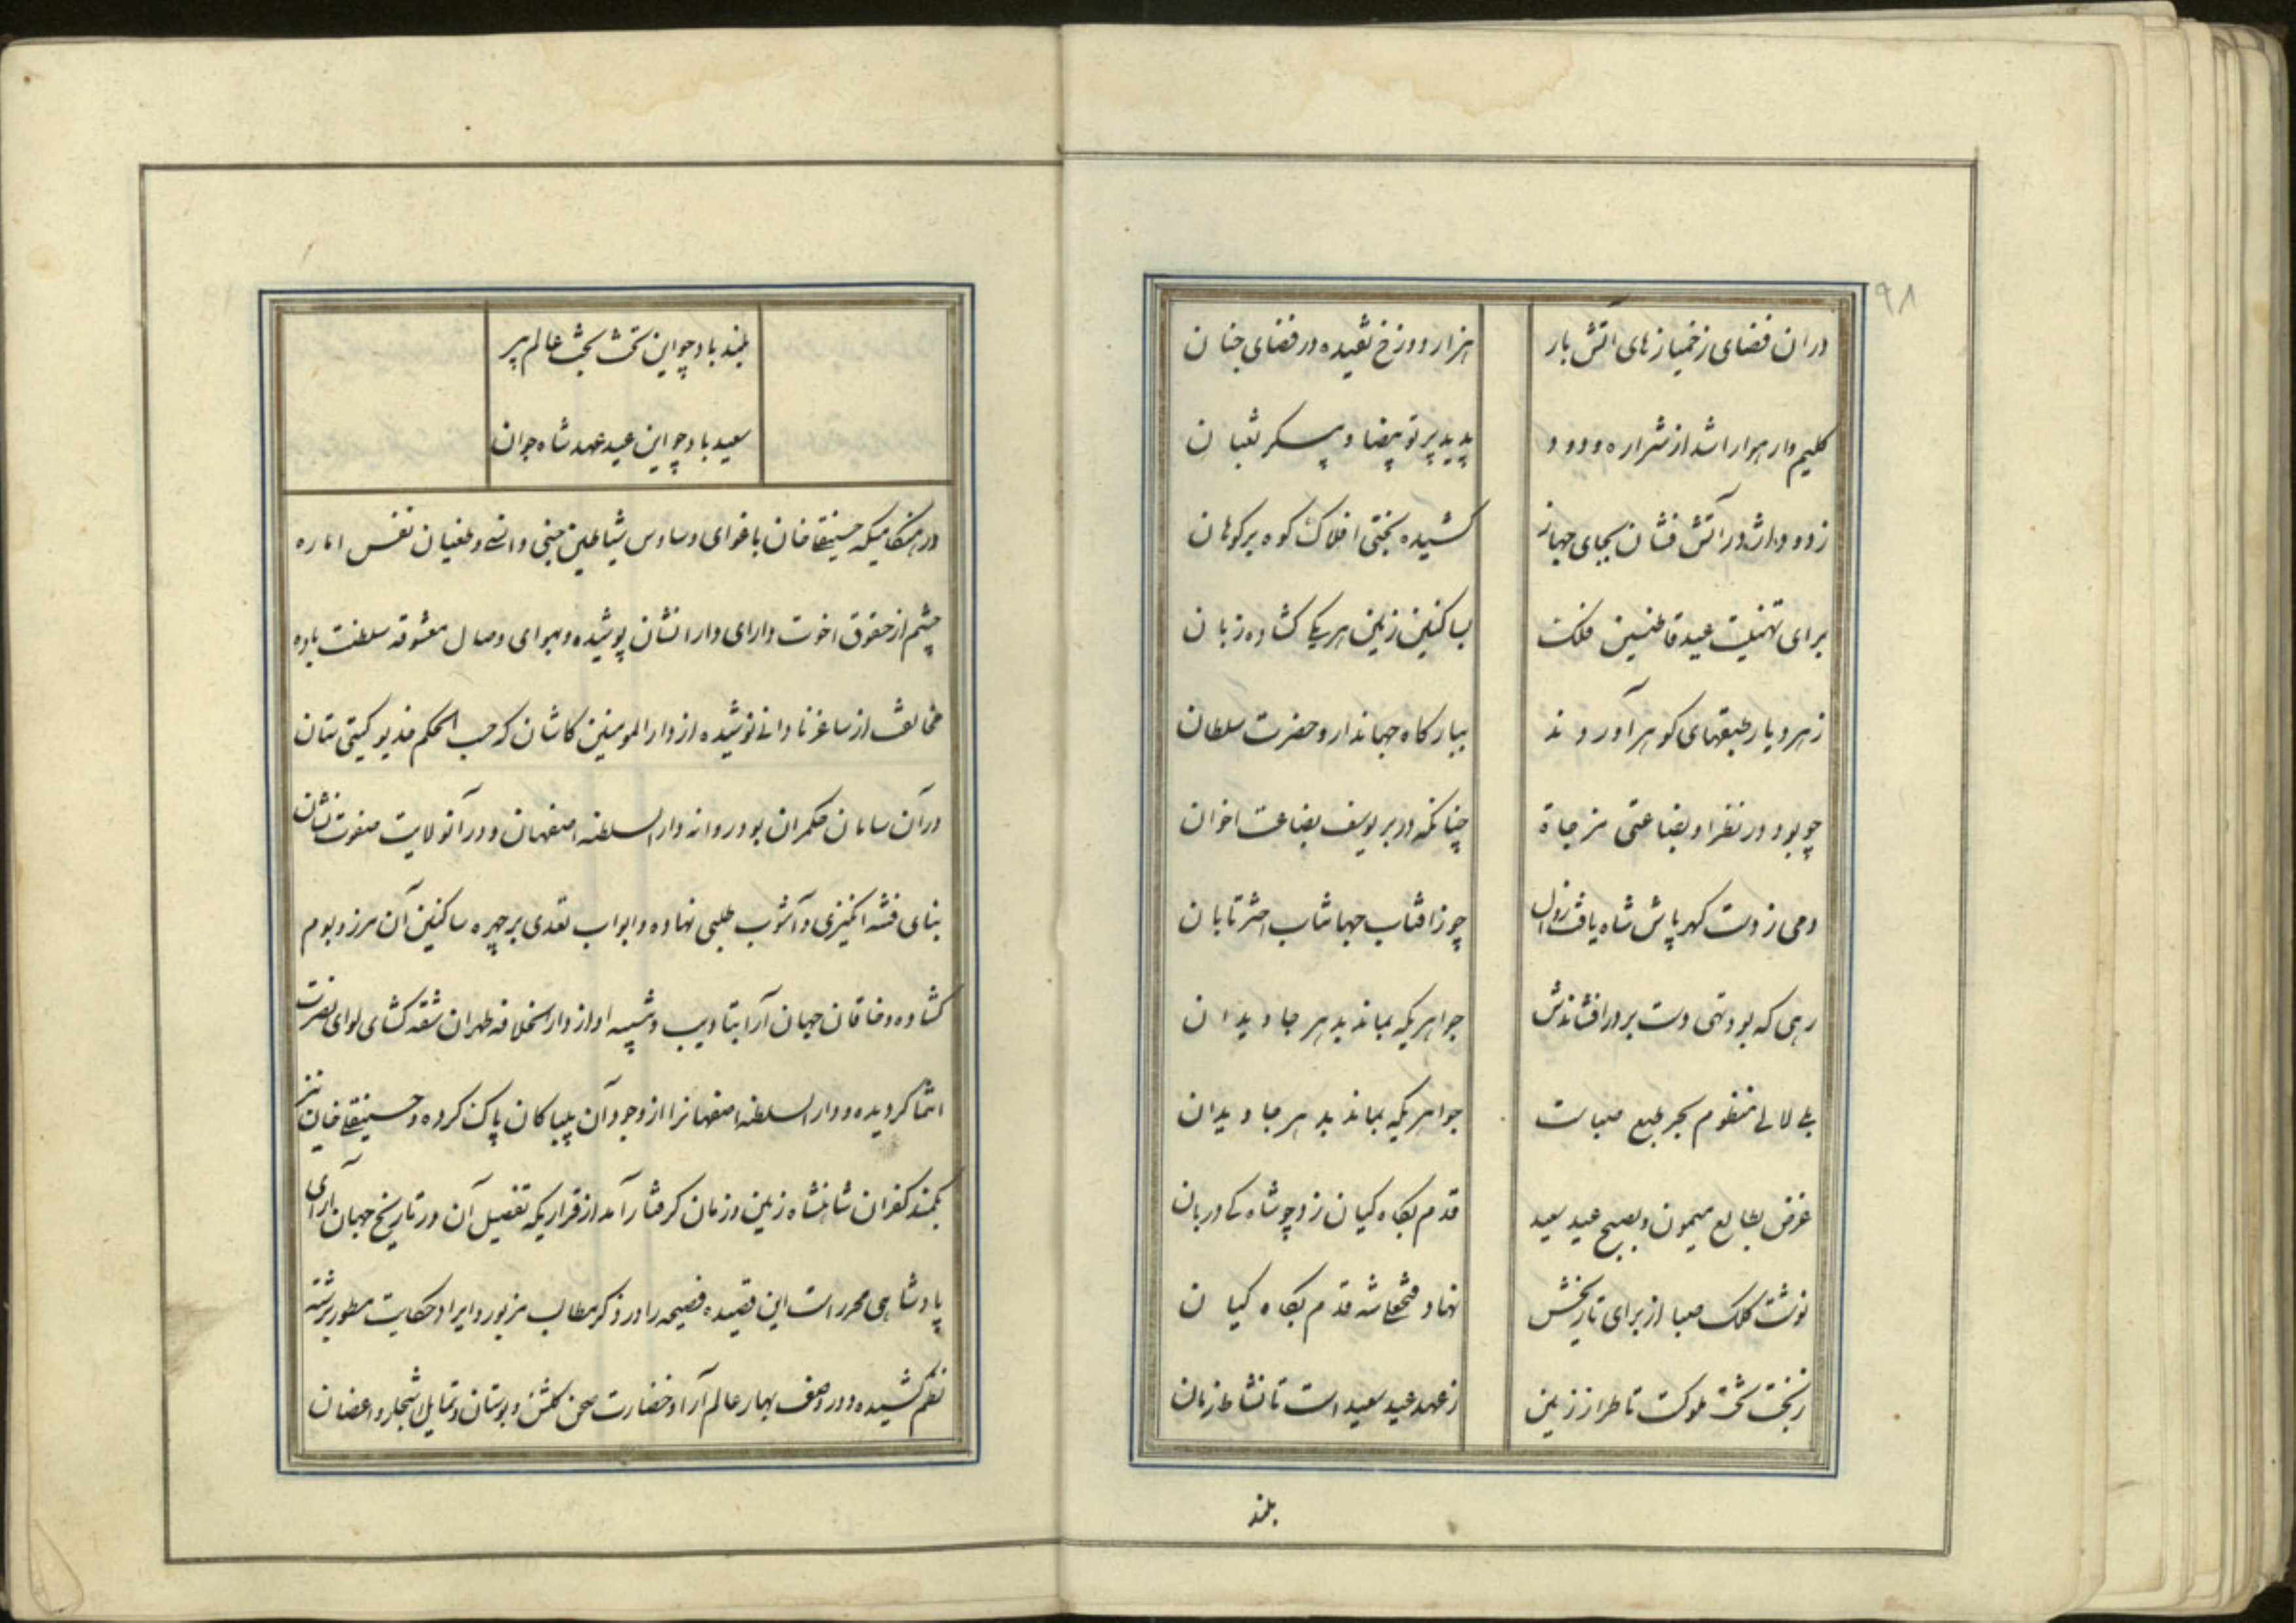 ۹۸
دران فضای زخمپاره‌های آتش بار هزار دوزخ تفتیده در فضای جنان
کلیم وار هوا را شد از شراره و دود پدید پرتو بیضا و پیکر ثعبان
ز دود واژدر آتش فشان بجای جهاز کشیده بختی افلاک کوه بر کوهان
برای تهنیت عید قاطنین فلک بساکنین زمین هر یکی کشاده زبان
ز هر دیار طبقهای کوهر آوردند ببارکاه جهاندار و حضرت سلطان
چو بود در نظر او بضاعتی مزجاة چنانکه در بر یوسف بضاعت اخوان
دمی ز دست کهر پاش شاه یافت نزول چو ز افتاب جهانتاب اختر تابان
رهی که بود تهی دست بر در افشاندش جواهریکه بماند بدهر جاویدان
بلی لالی منظوم بحر طبع صباست جواهریکه بماند بدهر جاویدان
غرض بطالع میمون و بصبح عید سعید قدم بکاه کیان زد چو شاه کی دربان
نوشت کلک صبا از برای تاریخش نهاد فتحعلیشه قدم بکاه کیان
ز بخت تخت ملوکست تا طراز زمین ز عهد عید سعید است تا نشاط زمان
بلند
بلند باد چو این تخت بخت عالم پیر
سعید باد چو این عید عهد شاه جوان
در هنکامیکه حسینقلیخان باغوای وساوس شیاطین جنی و انسی و طغیان نفس اماره
چشم از حقوق اخوت دارای دارا نشان پوشیده و بهوای وصال معشوقه سلطنت باده
مخالفت از ساغر نادانی نوشیده از دار المومنین کاشان که حسب الحکم خدیو کیتی ستان
در آن سامان حکمران بود روانه دار السلطنه اصفهان و در آنولایت صفوت نشان
بنای فتنه انکیزی و آشوب طلبی نهاده و ابواب تعدی بر چهره ساکنین آن مرز و بوم
کشاده و خاقان جهان آرا بتادیب و تنبیه او از دار الخلافه طهران شقه کشای لوای نصرت
انتما کردیده و دار السلطنه اصفهانرا از وجود آن بیباکان پاک کرده و حسینقلی خان نیز
بکمند کفران شاهنشاه زمین و زمان کرفتار آمد از قراریکه تفصیل آن در تاریخ جهان آرای
پادشاهی محرر است این قصیده فصیحه را در ذکر مطالب مزبور و ایراد حکایت مسطور برشته
نظم کشیده و در وصف بهار عالم آرا و خضارت صحن کلشن و بوستان و تمایل اشجار و اغصان